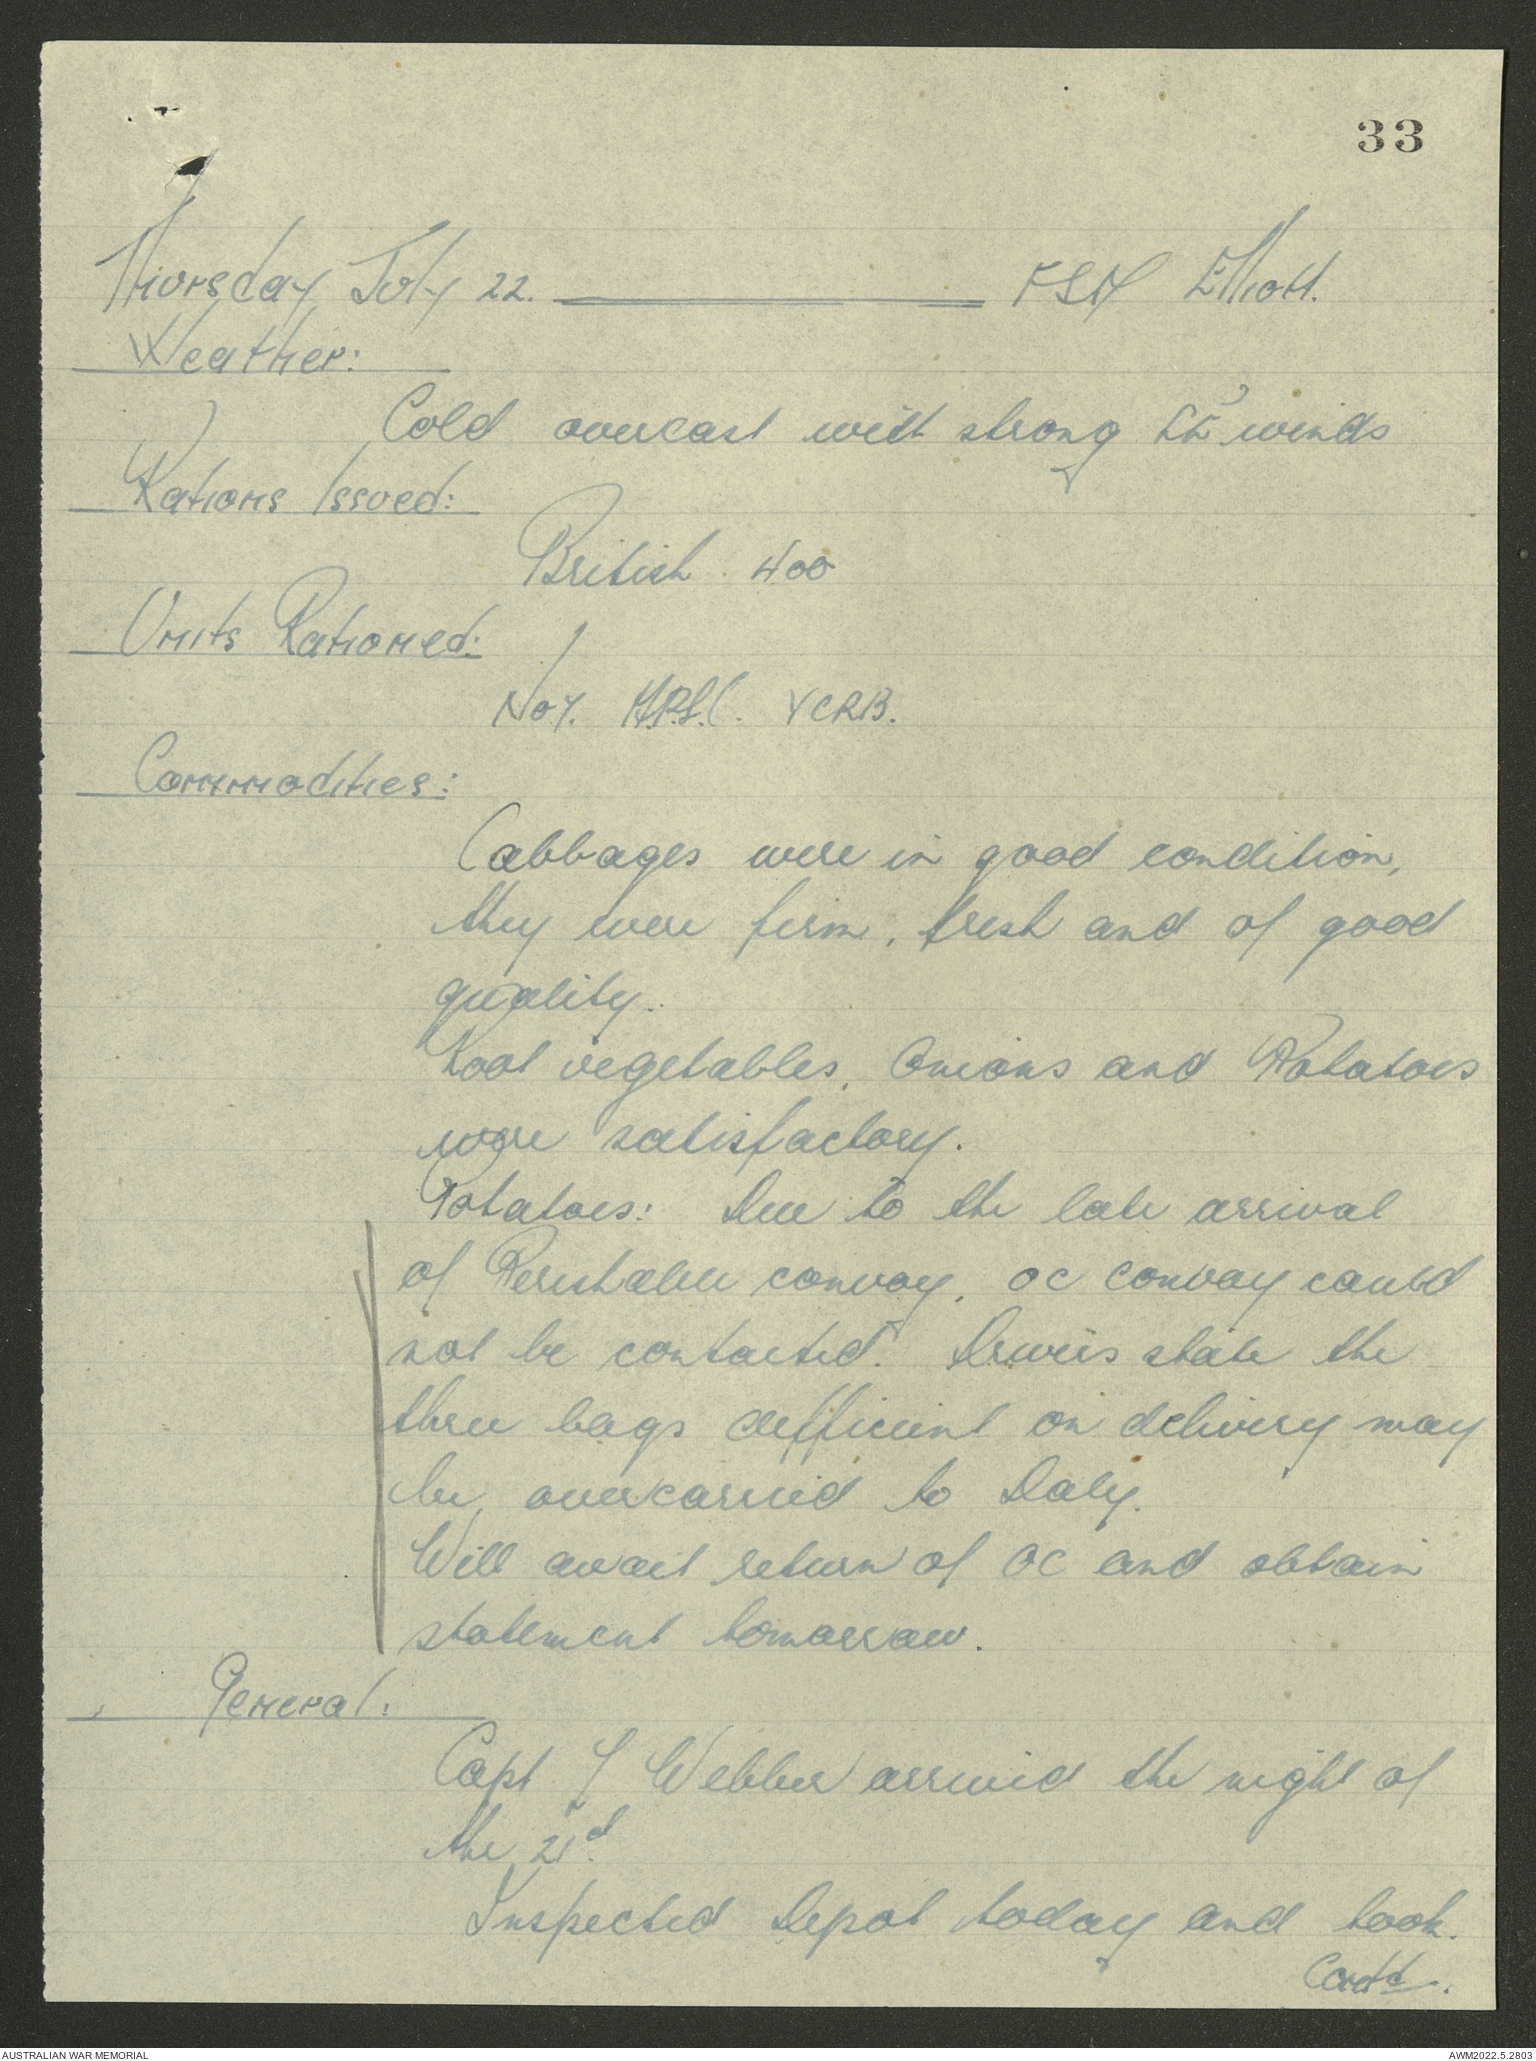 33
Thursday July 22. FSD Elliott.
Weather:
Cold overcast with strong SE winds
Rations Issued:
British 400
Units Rationed:
No 7. VCRB.
Commodities:
Cabbages were in good condition,
they were firm, fresh and of good
quality.
Root vegetables, Onions and Potatoes
were satisfactory.
Potatoes: Due to the late arrival
of convoy, OC convoy could
not be contacted. Drivers state the
three bags defficient on delivery may
be overcarried to Daly.
Will await return of OC and obtain
statement tomorrow.
General:
Capt Webber arrived the night of
the 21st.
Inspected Depot today and took.
Contd.
AUSTRALIAN WAR MEMORIAL
AWM2022.5.2803